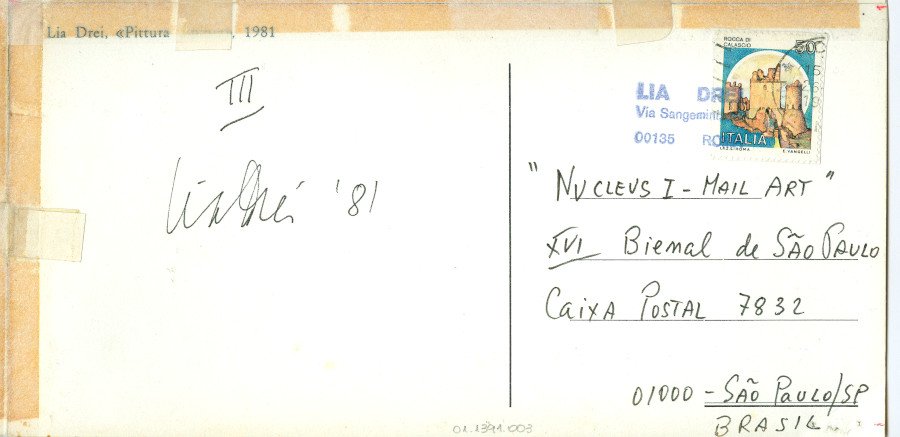 Lia Drei, «Pittura 1981
III
Lia Drei '81
ROCCA DI
CALASCIO
50
ITALIA
I.P.Z.S. ROMA E. VANGELLI
LIA DREI
Via Sangemini
00135 RO
"NUCLEUS I - MAIL ART"
XVI Bienal de SÃO PAULO
CAIXA POSTAL 7832
01000 - SÃO PAULO/SP
BRASIL
01.1391.003